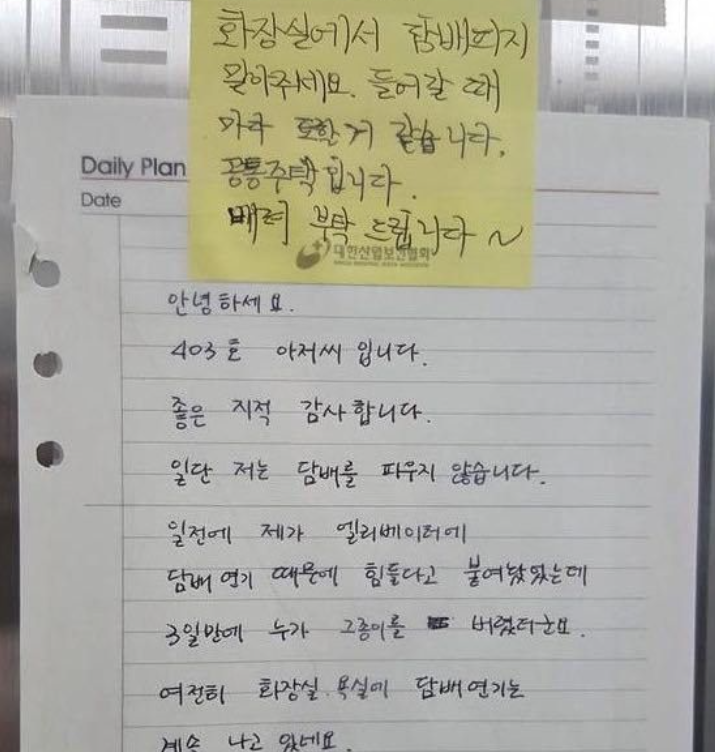 화장실에서 담배피지
말아주세요. 들어갈 때
마다 토할거 같습니다.
공동주택입니다.
배려 부탁 드립니다 ~
대한산업보건협회
Daily Plan
Date
안녕하세요.
403호 아저씨 입니다.
좋은 지적 감사합니다.
일단 저는 담배를 피우지 않습니다.
일전에 제가 엘리베이터에
담배 연기 때문에 힘들다고 붙여놨었는데
3일만에 누가 그종이를 버렸더군요.
여전히 화장실.욕실에 담배연기는
계속 나고 있네요.